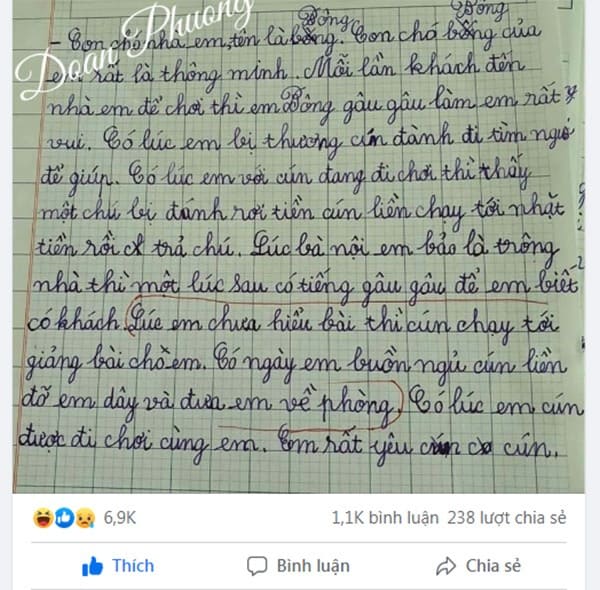 Đoan Phuong
- Con chó nhà em, tên là bông. Bông Con chó bông Bông của
em rất là thông minh. Mỗi lần khách đến
nhà em để chơi thì em Bông gâu gâu làm em rất
vui. Có lúc em bị thương cún đành đi tìm người
để giúp. Có lúc em với cún đang đi chơi thì thấy
một chú bị đánh rơi tiền cún liền chạy tới nhặt
tiền rồi trả chú. Lúc bà nội em bảo là trông
nhà thì một lúc sau có tiếng gâu gâu để em biết
có khách. Lúc em chưa hiểu bài thì cún chạy tới
giảng bài cho em. Có ngày em buồn ngủ cún liền
đỡ em dây và đưa em về phòng. Có lúc em cún
được đi chơi cùng em. Em rất yêu cún.
6,9K 1,1K bình luận 238 lượt chia sẻ
Thích Bình luận Chia sẻ